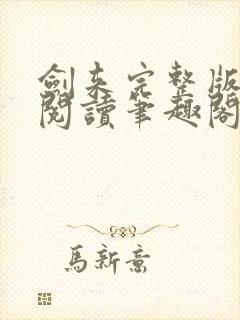 劍来完整版
閱讀筆趣閣
馬新意